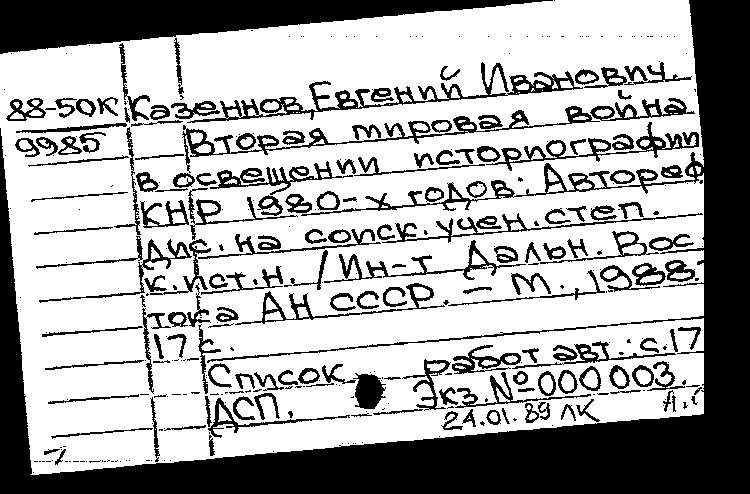 88-50К Казеннов, Евгений Иванович.
9985 Вторая мировая война
в освещении историографии
КНР 1980-х годов: Автореф
дис. на соиск. учен. степ.
к.ист.н. / Ин-т Дальн. Вос-
тока АН СССР. – М., 1988.-
17 с.
Список работ авт.: с.17
ДСП. Экз. № 000 003.
24.01.89 ЛК